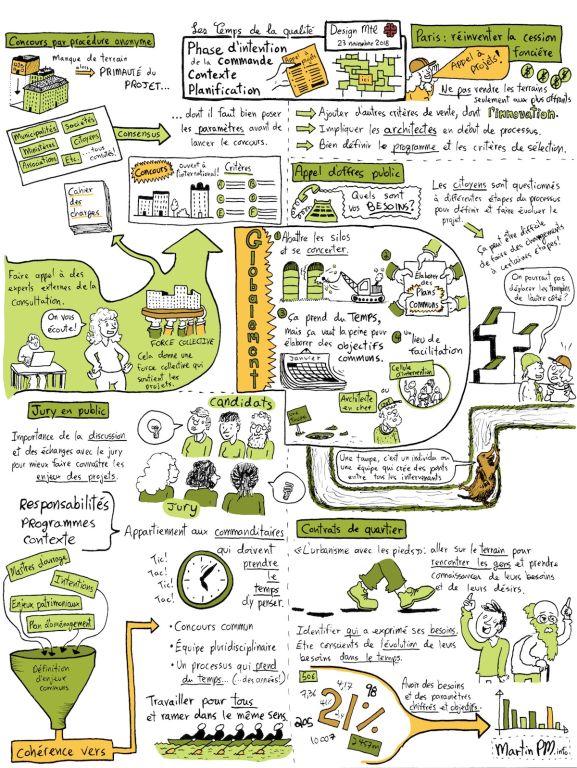 Les Temps de la qualité
Design Mtl
23 novembre 2018
Phase d'intention
de la commande
Contexte
Planification
Appel à projets
ICI
Concours par procédure anonyme
Manque de terrain
alors
PRIMAUTÉ du
PROJET...
Municipalités
Sociétés
Ministères
Citoyens
Associations
Etc.
...tous consultés!
Consensus
... dont il faut bien poser
les paramètres avant de
lancer le concours.
Cahier
des
charges
Concours
ouvert à
l'international!
Critères
Paris: réinventer la cession
foncière
Appel à
Projets!
Ne pas vendre les terrains
seulement aux plus offrants
Ajouter d'autres critères de vente, dont l'innovation.
Impliquer les architectes en début de processus.
Bien définir le programme et les critères de sélection.
Appel d'offres public
Quels sont
vos BESOINS?
Les citoyens sont questionnés
à différentes étapes du processus
pour définir et faire évoluer le
projet.
Ça peut être difficile
de faire des changements
à certaines étapes!
On pourrait pas
déplacer les tremplins
de l'autre côté?
Faire appel à des
experts externes de la
consultation.
On vous
écoute!
FORCE COLLECTIVE
Cela donne une
force collective qui
soutient les
projets.
Globalement
1 Abattre les silos
et se concerter.
2
Élaborer
des
Plans
COMMUNS
3 Ça prend du TEMPS,
mais ça vaut la peine pour
élaborer des objectifs
communs.
Janvier
4 Un lieu de
facilitation
Cellule d'intervention
ou
Architecte
en chef
Une taupe, c'est un individu ou
une équipe qui crée des ponts
entre tous les intervenants
Jury en public
Importance de la discussion
et des échanges avec le jury
pour mieux faire connaître les
enjeux des projets.
candidats
Jury
Responsabilités
Programmes
Contexte
Appartiennent aux commanditaires
qui doivent
prendre
le
temps
d'y penser.
Tic!
Tac!
Tic!
Tac!
Maîtres d'ouvrage
Intentions
Enjeux patrimoniaux
Plan d'aménagement
Définition
d'enjeux
communs
Cohérence vers
• Concours commun
• Équipe pluridisciplinaire
• Un processus qui prend
du temps... (...des années!)
Travailler pour tous
et ramer dans le même sens.
Contrats de quartier
«L'urbanisme avec les pieds»: aller sur le terrain pour
rencontrer les gens et prendre
connaissance de leurs besoins
et de leurs désirs.
Identifier qui a exprimé ses besoins.
Être conscients de l'évolution de leurs
besoins dans le temps.
50$
7,36
4,17
98
21%
205
10 007
2 457 m
Avoir des besoins
et des paramètres
chiffrés et objectifs.
MartinPM.info